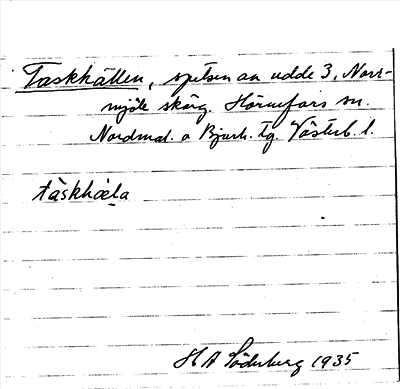 Taskhällen, spetsen av udde 3, Norr-
mjöle skärg. Hörnefors sn.
Nordmal. o Bjurh. tg. Västerb. l.
tàskhæla
H A Söderberg 1935